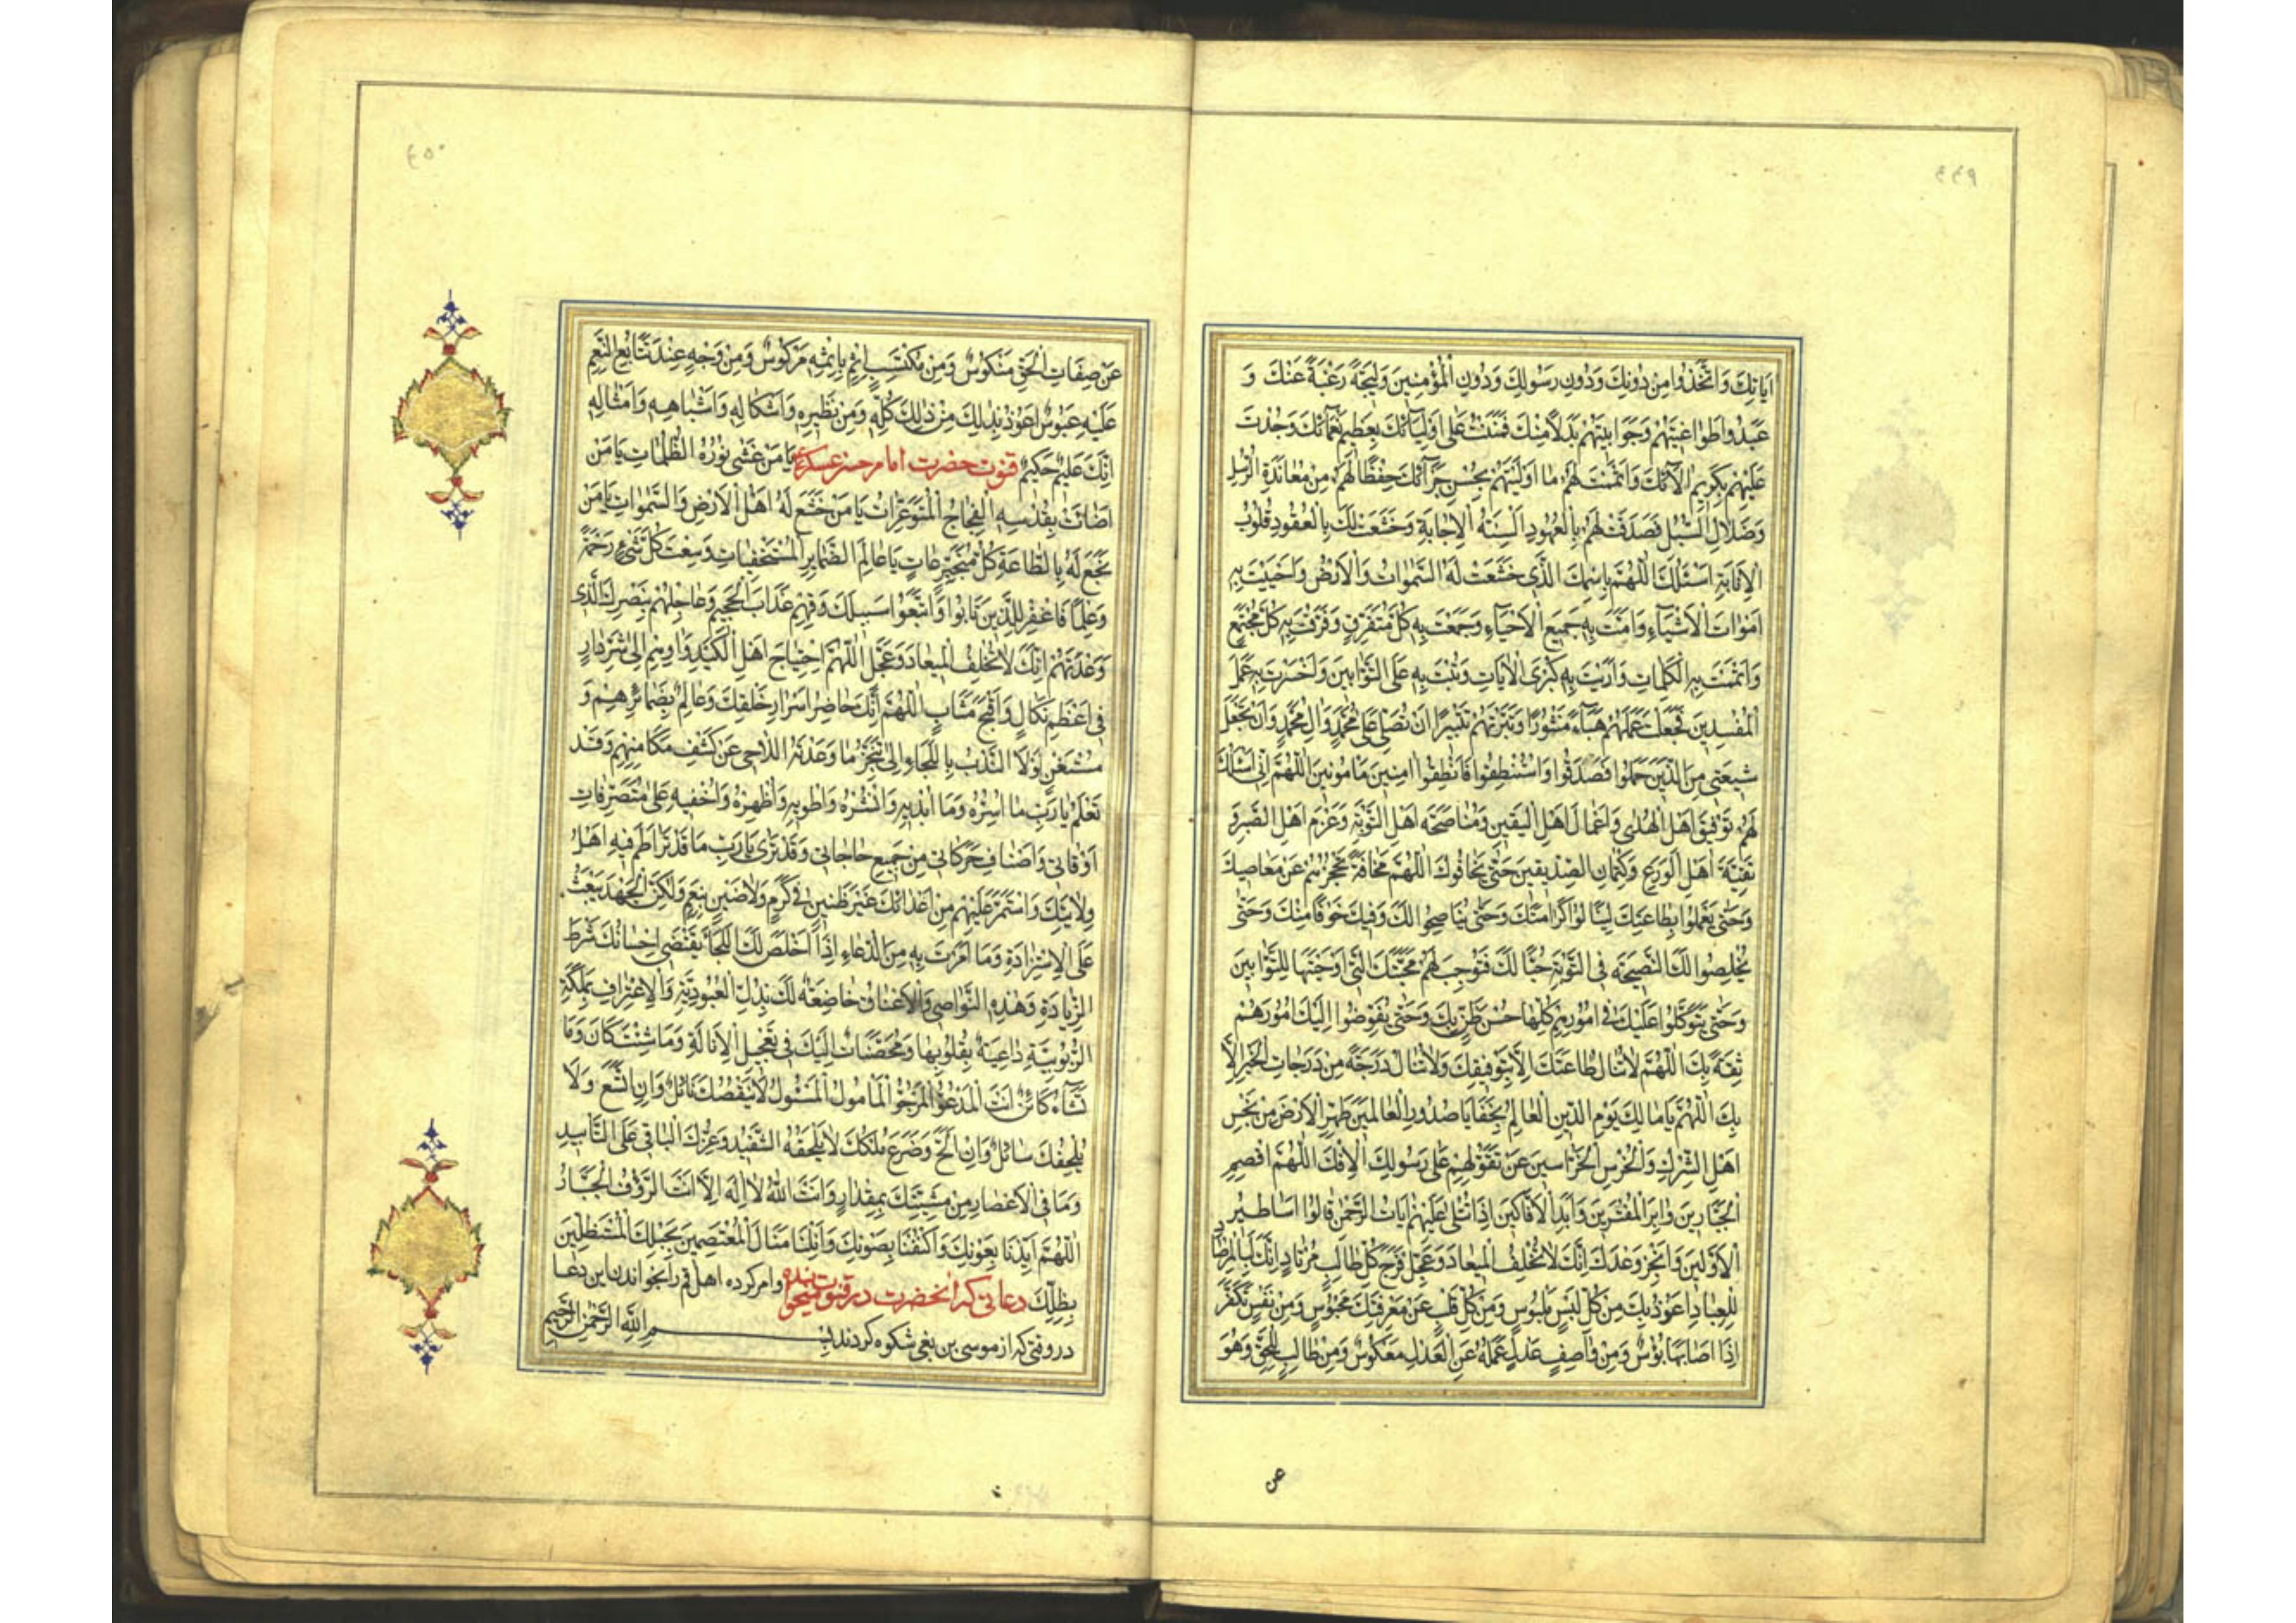 ٤٤٩
اٰيَاتِكَ وَاتَّخَذُوا مِنْ دُونِكَ وَدُونِ رَسُولِكَ وَدُونِ الْمُؤْمِنِينَ وَلِيجَةً رَغْبَةً عَنْكَ وَ
عَبَدُوا طَوَاغِيتَهُمْ وَجَوَابِيتَهُمْ بَدَلًا مِنْكَ فَمَنَنْتَ عَلَى اَوْلِيَآئِكَ بِعَظِيمِ نَعْمَآئِكَ وَجُدْتَ
عَلَيْهِمْ بِكَرِيمِ اٰلَآئِكَ وَاَتْمَمْتَ لَهُمْ مَا اَوْلَيْتَهُمْ بِحُسْنِ جَزَآئِكَ حِفْظًا لَهُمْ مِنْ مُعَانَدَةِ الرُّسُلِ
وَضَلَالِ السُّبُلِ فَصَدَقَتْ لَهُمْ بِالْعُهُودِ اَلْسِنَةُ الْاِجَابَةِ وَخَشَعَتْ لَكَ بِالْعُقُودِ قُلُوبُ
الْاِنَابَةِ اَسْئَلُكَ اللّٰهُمَّ بِاسْمِكَ الَّذِي خَشَعَتْ لَهُ السَّمٰوَاتُ وَالْاَرْضُ وَاَحْيَيْتَ بِهِ
اَمْوَاتَ الْاَشْيَآءِ وَاَمَتَّ بِهِ جَمِيعَ الْاَحْيَآءِ وَجَمَعْتَ بِهِ كُلَّ مُتَفَرِّقٍ وَفَرَّقْتَ بِهِ كُلَّ مُجْتَمِعٍ
وَاَتْمَمْتَ بِهِ الْكَلِمَاتِ وَاَرَيْتَ بِهِ كُبْرَى الْاٰيَاتِ وَتُبْتَ بِهِ عَلَى التَّوَّابِينَ وَاَخْسَرْتَ بِهِ عَمَلَ
الْمُفْسِدِينَ فَجَعَلْتَ عَمَلَهُمْ هَبَآءً مَنْثُورًا وَتَبَّرْتَهُمْ تَتْبِيرًا اَنْ تُصَلِّيَ عَلَى مُحَمَّدٍ وَاٰلِ مُحَمَّدٍ وَاَنْ تَجْعَلَ
شِيعَتِي مِنَ الَّذِينَ حُمِّلُوا فَصَدَّقُوا وَاسْتُنْطِقُوا فَنَطَقُوا اٰمِنِينَ مَأْمُونِينَ اللّٰهُمَّ اِنِّي اَسْئَلُكَ
لَهُمْ تَوْفِيقَ اَهْلِ الْهُدٰى وَاَعْمَالَ اَهْلِ الْيَقِينِ وَمُنَاصَحَةَ اَهْلِ التَّوْبَةِ وَعَزْمَ اَهْلِ الصَّبْرِ وَ
تَقِيَّةَ اَهْلِ الْوَرَعِ وَكِتْمَانَ الصِّدِّيقِينَ حَتّٰى يَخَافُوكَ اللّٰهُمَّ مَخَافَةً تَحْجُزُهُمْ عَنْ مَعَاصِيكَ
وَحَتّٰى يَعْمَلُوا بِطَاعَتِكَ لِيَنَالُوا كَرَامَتَكَ وَحَتّٰى يُنَاصِحُوا لَكَ وَفِيكَ خَوْفًا مِنْكَ وَحَتّٰى
يُخْلِصُوا لَكَ النَّصِيحَةَ فِي التَّوْبَةِ حُبًّا لَكَ فَتُوجِبَ لَهُمْ مَحَبَّتَكَ الَّتِي اَوْجَبْتَهَا لِلتَّوَّابِينَ
وَحَتّٰى يَتَوَكَّلُوا عَلَيْكَ فِي اُمُورِهِمْ كُلِّهَا حُسْنَ ظَنٍّ بِكَ وَحَتّٰى يُفَوِّضُوا اِلَيْكَ اُمُورَهُمْ
ثِقَةً بِكَ اللّٰهُمَّ لَا تُنَالُ طَاعَتُكَ اِلَّا بِتَوْفِيقِكَ وَلَا تُنَالُ دَرَجَةٌ مِنْ دَرَجَاتِ الْخَيْرِ اِلَّا
بِكَ اللّٰهُمَّ يَا مَالِكَ يَوْمِ الدِّينِ الْعَالِمُ بِخَفَايَا صُدُورِ الْعَالَمِينَ طَهِّرِ الْاَرْضَ مِنْ نَجَسِ
اَهْلِ الشِّرْكِ وَاَخْرِسِ الْخَرَّاصِينَ عَنْ تَقَوُّلِهِمْ عَلَى رَسُولِكَ الْاِفْكَ اللّٰهُمَّ اقْصِمِ
الْجَبَّارِينَ وَاَبِرِ الْمُفْتَرِينَ وَاَبِدِ الْاَفَّاكِينَ اِذَا تُتْلٰى عَلَيْهِمْ اٰيَاتُ الرَّحْمٰنِ قَالُوا اَسَاطِيرُ
الْاَوَّلِينَ وَاَنْجِزْ وَعْدَكَ اِنَّكَ لَا تُخْلِفُ الْمِيعَادَ وَعَجِّلْ فَرَجَ كُلِّ طَالِبٍ مُرْتَادٍ اِنَّكَ لَبِالْمِرْصَادِ
لِلْعِبَادِ اَعُوذُ بِكَ مِنْ كُلِّ لَبْسٍ مَلْبُوسٍ وَمِنْ كُلِّ قَلْبٍ عَنْ مَعْرِفَتِكَ مَحْبُوسٍ وَمِنْ نَفْسٍ تَكْفُرُ
اِذَا اَصَابَهَا بُؤْسٌ وَمِنْ وَاصِفِ عَدْلٍ عَمَلُهُ عَنِ الْعَدْلِ مَعْكُوسٌ وَمِنْ طَالِبٍ لِلْحَقِّ وَهُوَ
٤٥٠
عَنْ صِفَاتِ الْحَقِّ مَنْكُوسٌ وَمِنْ مُكْتَسِبِ اِثْمٍ بِاِثْمِهِ مَرْكُوسٌ وَمِنْ وَجْهٍ عِنْدَ تَتَابُعِ النِّعَمِ
عَلَيْهِ عَبُوسٌ اَعُوذُ بِكَ مِنْ ذٰلِكَ كُلِّهِ وَمِنْ نَظِيرِهِ وَاَشْكَالِهِ وَاَشْبَاهِهِ وَاَمْثَالِهِ
اِنَّكَ عَلِيمٌ حَكِيمٌ قنوت حضرت امام حسن عسكرى يَا مَنْ غَشِيَ نُورُهُ الظُّلُمَاتِ يَا مَنْ
اَضَائَتْ بِقُدْسِهِ الْفِجَاجُ الْمُتَوَعِّرَاتُ يَا مَنْ خَشَعَ لَهُ اَهْلُ الْاَرْضِ وَالسَّمٰوَاتِ يَا مَنْ
بَخَعَ لَهُ بِالطَّاعَةِ كُلُّ مُتَجَبِّرٍ عَاتٍ يَا عَالِمَ الضَّمَايِرِ الْمُسْتَخْفِيَاتِ وَسِعْتَ كُلَّ شَيْءٍ رَحْمَةً
وَعِلْمًا فَاغْفِرْ لِلَّذِينَ تَابُوا وَاتَّبَعُوا سَبِيلَكَ وَقِهِمْ عَذَابَ الْجَحِيمِ وَعَاجِلْهُمْ بِنَصْرِكَ الَّذِي
وَعَدْتَهُمْ اِنَّكَ لَا تُخْلِفُ الْمِيعَادَ وَعَجِّلِ اللّٰهُمَّ اجْتِيَاحَ اَهْلِ الْكَيْدِ وَاٰوِهِمْ اِلٰى شَرِّ دَارٍ
فِي اَعْظَمِ نَكَالٍ وَاَقْبَحِ مَثَابٍ اللّٰهُمَّ اِنَّكَ حَاضِرُ اَسْرَارِ خَلْقِكَ وَعَالِمٌ بِضَمَائِرِهِمْ وَ
مُسْتَغْنٍ لَوْلَا النَّدْبُ بِاللَّجَاءِ اِلٰى تَنَجُّزِ مَا وَعَدْتَهُ اللَّاجِي عَنْ كَشْفِ مَكَامِنِهِمْ وَقَدْ
تَعْلَمُ يَا رَبِّ مَا اُسِرُّهُ وَمَا اُبْدِيهِ وَاَنْشُرُهُ وَاَطْوِيهِ وَاُظْهِرُهُ وَاُخْفِيهِ عَلَى مُتَصَرِّفَاتِ
اَوْقَاتِي وَاَصْنَافِ حَرَكَاتِي مِنْ جَمِيعِ حَاجَاتِي وَقَدْ تَرٰى يَا رَبِّ مَا قَدْ تَرَاطَمَ فِيهِ اَهْلُ
وِلَايَتِكَ وَاسْتَمَرَّ عَلَيْهِمْ مِنْ اَعْدَائِكَ غَيْرَ ظَنِينٍ فِي كَرَمٍ وَلَا ضَنِينٍ بِنِعَمٍ وَلٰكِنَّ الْجُهْدَ يَبْعَثُ
عَلَى الْاِسْتِزَادَةِ وَمَا اَمَرْتَ بِهِ مِنَ الدُّعَاءِ اِذَا اَخْلَصَ لَكَ اللَّجَأَ يَقْتَضِي اِحْسَانُكَ شَرْطَ
الزِّيَادَةِ وَهٰذِهِ النَّوَاصِي وَالْاَعْنَاقُ خَاضِعَةٌ لَكَ بِذُلِّ الْعُبُودِيَّةِ وَالْاِعْتِرَافِ بِمَلَكَةِ
الرُّبُوبِيَّةِ دَاعِيَةٌ بِقُلُوبِهَا وَمُحَصَّنَاتٌ اِلَيْكَ فِي تَعْجِيلِ الْاِنَالَةِ وَمَا شِئْتَ كَانَ وَمَا
تَشَآءُ كَائِنٌ اَنْتَ الْمَدْعُوُّ الْمَرْجُوُّ الْمَأْمُولُ الْمَسْئُولُ لَا يَنْقُصُكَ نَائِلٌ وَاِنِ اتَّسَعَ وَلَا
يُلْحِفُكَ سَائِلٌ وَاِنْ اَلَحَّ وَضَرَعَ مُلْكُكَ لَا يَلْحَقُهُ التَّنْفِيدُ وَعِزُّكَ الْبَاقِي عَلَى التَّأْبِيدِ
وَمَا فِي الْاَعْصَارِ مِنْ مَشِيَّتِكَ بِمِقْدَارٍ وَاَنْتَ اللّٰهُ لَا اِلٰهَ اِلَّا اَنْتَ الرَّؤُفُ الْجَبَّارُ
اللّٰهُمَّ اَيِّدْنَا بِعَوْنِكَ وَاكْنُفْنَا بِصَوْنِكَ وَاَنِلْنَا مَنَالَ الْمُعْتَصِمِينَ بِحَبْلِكَ الْمُسْتَظِلِّينَ
بِظِلِّكَ دعائى كه انحضرت در قنوت وامر كرده اهل قم را بخواندن اين دعا
در وقتى كه از موسى بن بغى شكوه كردند بِسْمِ اللّٰهِ الرَّحْمٰنِ الرَّحِيمِ